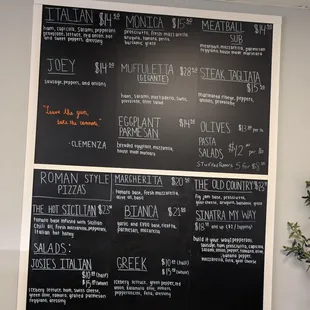 ITALIAN $14.50
ham, capicola, salami, pepperoni
provolone, lettuce, red onion, hot
and sweet peppers, dressing
MONICA $15.50
prosciutto, fresh mozzarella,
arugula, tomato, pesto,
balsamic glaze
MEATBALL $14.50
SUB
meatball, mozzarella, parmesan
house made marinara
JOEY $14.50
sausage, peppers, and onions
MUFFULETTA $28.50
(GIGANTE)
ham, salami, mortadella, swiss,
provolone, olive salad
STEAK TAGIATA
$15.50
marinated flank, peppers,
onions, provolone
"Leave the gun,
take the cannoli"
- CLEMENZA
EGGPLANT $14.50
PARMESAN
breaded eggplant, mozzarella,
house made marinara
OLIVES
PASTA $12.00 per lb.
SALADS
ROMAN STYLE
PIZZAS
MARGHERITA $20
tomato base, fresh mozzarella,
olive oil, basil
THE OLD COUNTRY $23
fig jam base, prosciutto,
goat cheese, arugula, balsamic glaze
THE HOT SICILIAN $23
tomato base infused with Sicilian
Chili Oil, fresh mozzarella, pepperoni,
Italian hot honey
BIANCA $21
garlic and EVOO base, ricotta,
parmesan, mozzarella
SINATRA MY WAY
build it your way: pepperoni,
sausage, ham, prosciutto, capicola,
SALADS:
JOSIE'S ITALIAN
$10.00 (half)
$15.00 (whole)
Iceberg lettuce, ham, swiss cheese,
green olive, tomato, grated parmesan
dressing
GREEK $10 (half)
$15 (whole)
iceberg lettuce, green pepper, red
onion, kalamata olive, tomato,
pepperoncini, feta, dressing